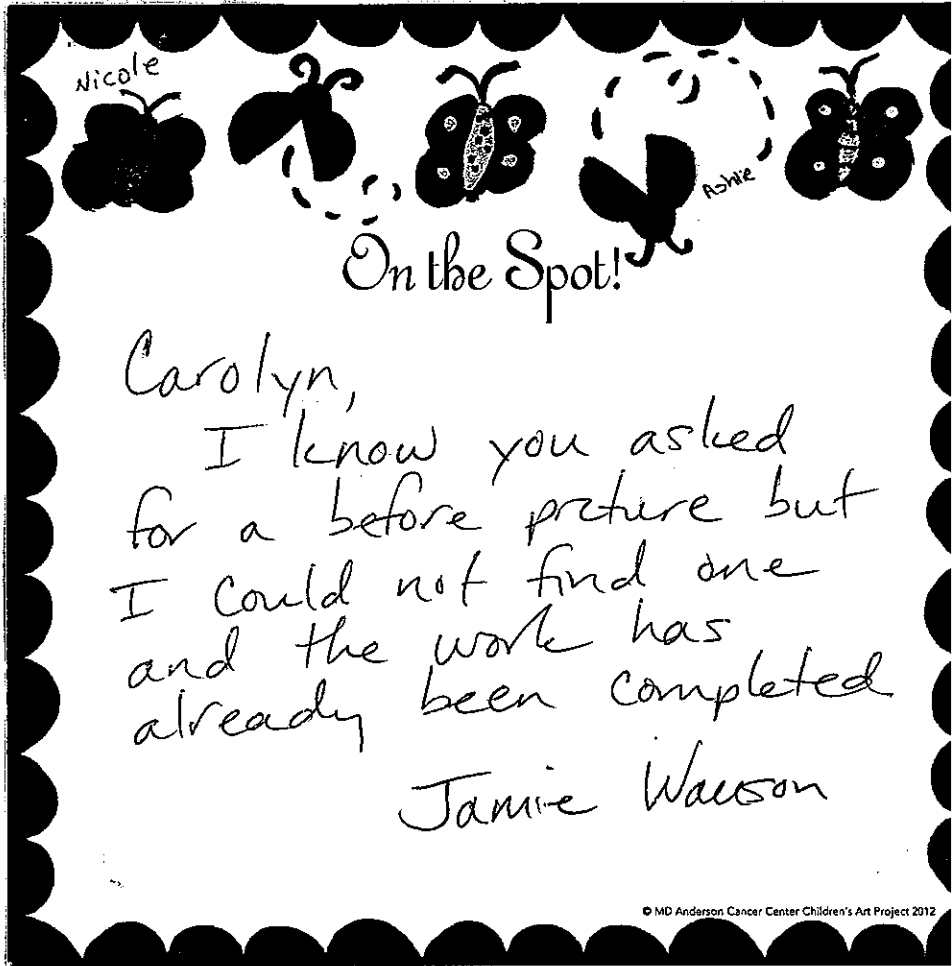 Nicole
Ashie
On the Spot!
Carolyn,
I know you asked
for a before picture but
I could not find one
and the work has
already been completed
Jamie Wauson
© MD Anderson Cancer Center Children's Art Project 2012